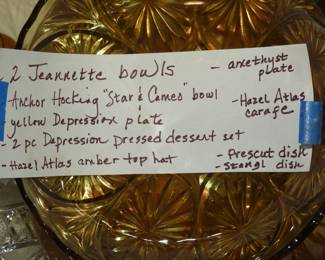 2 Jeannette bowls
Anchor Hocking "Star & Cameo" bowl
yellow Depression plate
- 2 pc Depression Pressed dessert set
- Hazel Atlas amber top hat
- amethyst plate
- Hazel Atlas carafe
- Prescut dish
- Stangl dish